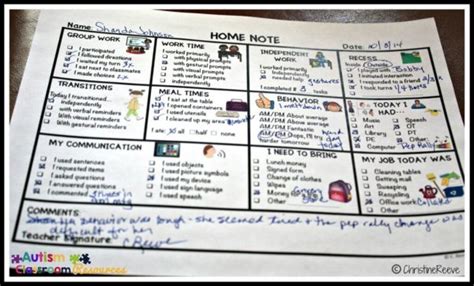 HOME NOTE
Name: Shanda Johnson
Date: 10/3/14
GROUP WORK
I participated
I followed directions
I waited my turn
I sat next to classmates
I made choices
WORK TIME
I worked primarily
with physical prompts
with verbal prompts
with gestural prompts
independently
INDEPENDENT
WORK
I worked
independently
with
gestures
I completed 3 tasks
RECESS
I played with Bobby
I initiated interaction
I responded to a friend
I took turns
TRANSITIONS
Today I transitioned...
independently
with verbal reminders
With visual reminders
With gestural reminders
MEAL TIMES
I sat at the table
I opened containers
I used utensils
I ate all half none
BEHAVIOR
AM/PM About average
AM/PM Above average
AM/PM Oops, I'll try
harder tomorrow
TODAY I
HAD
Art
PT
OT
DT
Computer
Pep Rally
MY COMMUNICATION
I used sentences
I requested items
I asked questions
I answered questions
I commented
I used objects
I used picture symbols
I used my device
I used sign language
I used speech
I NEED TO BRING
Lunch money
Signed form
Change of clothes
Wipes
Diapers
MY JOB TODAY WAS
Cafeteria
Mail
Sweep
Recycling
Office
DC
PLC
Other
COMMENTS:
behavior was tough - she seemed tired & the pep rally change was
difficult for her
Teacher Signature: C Reeve
Autism
Classroom Resources
© ChristineReeve